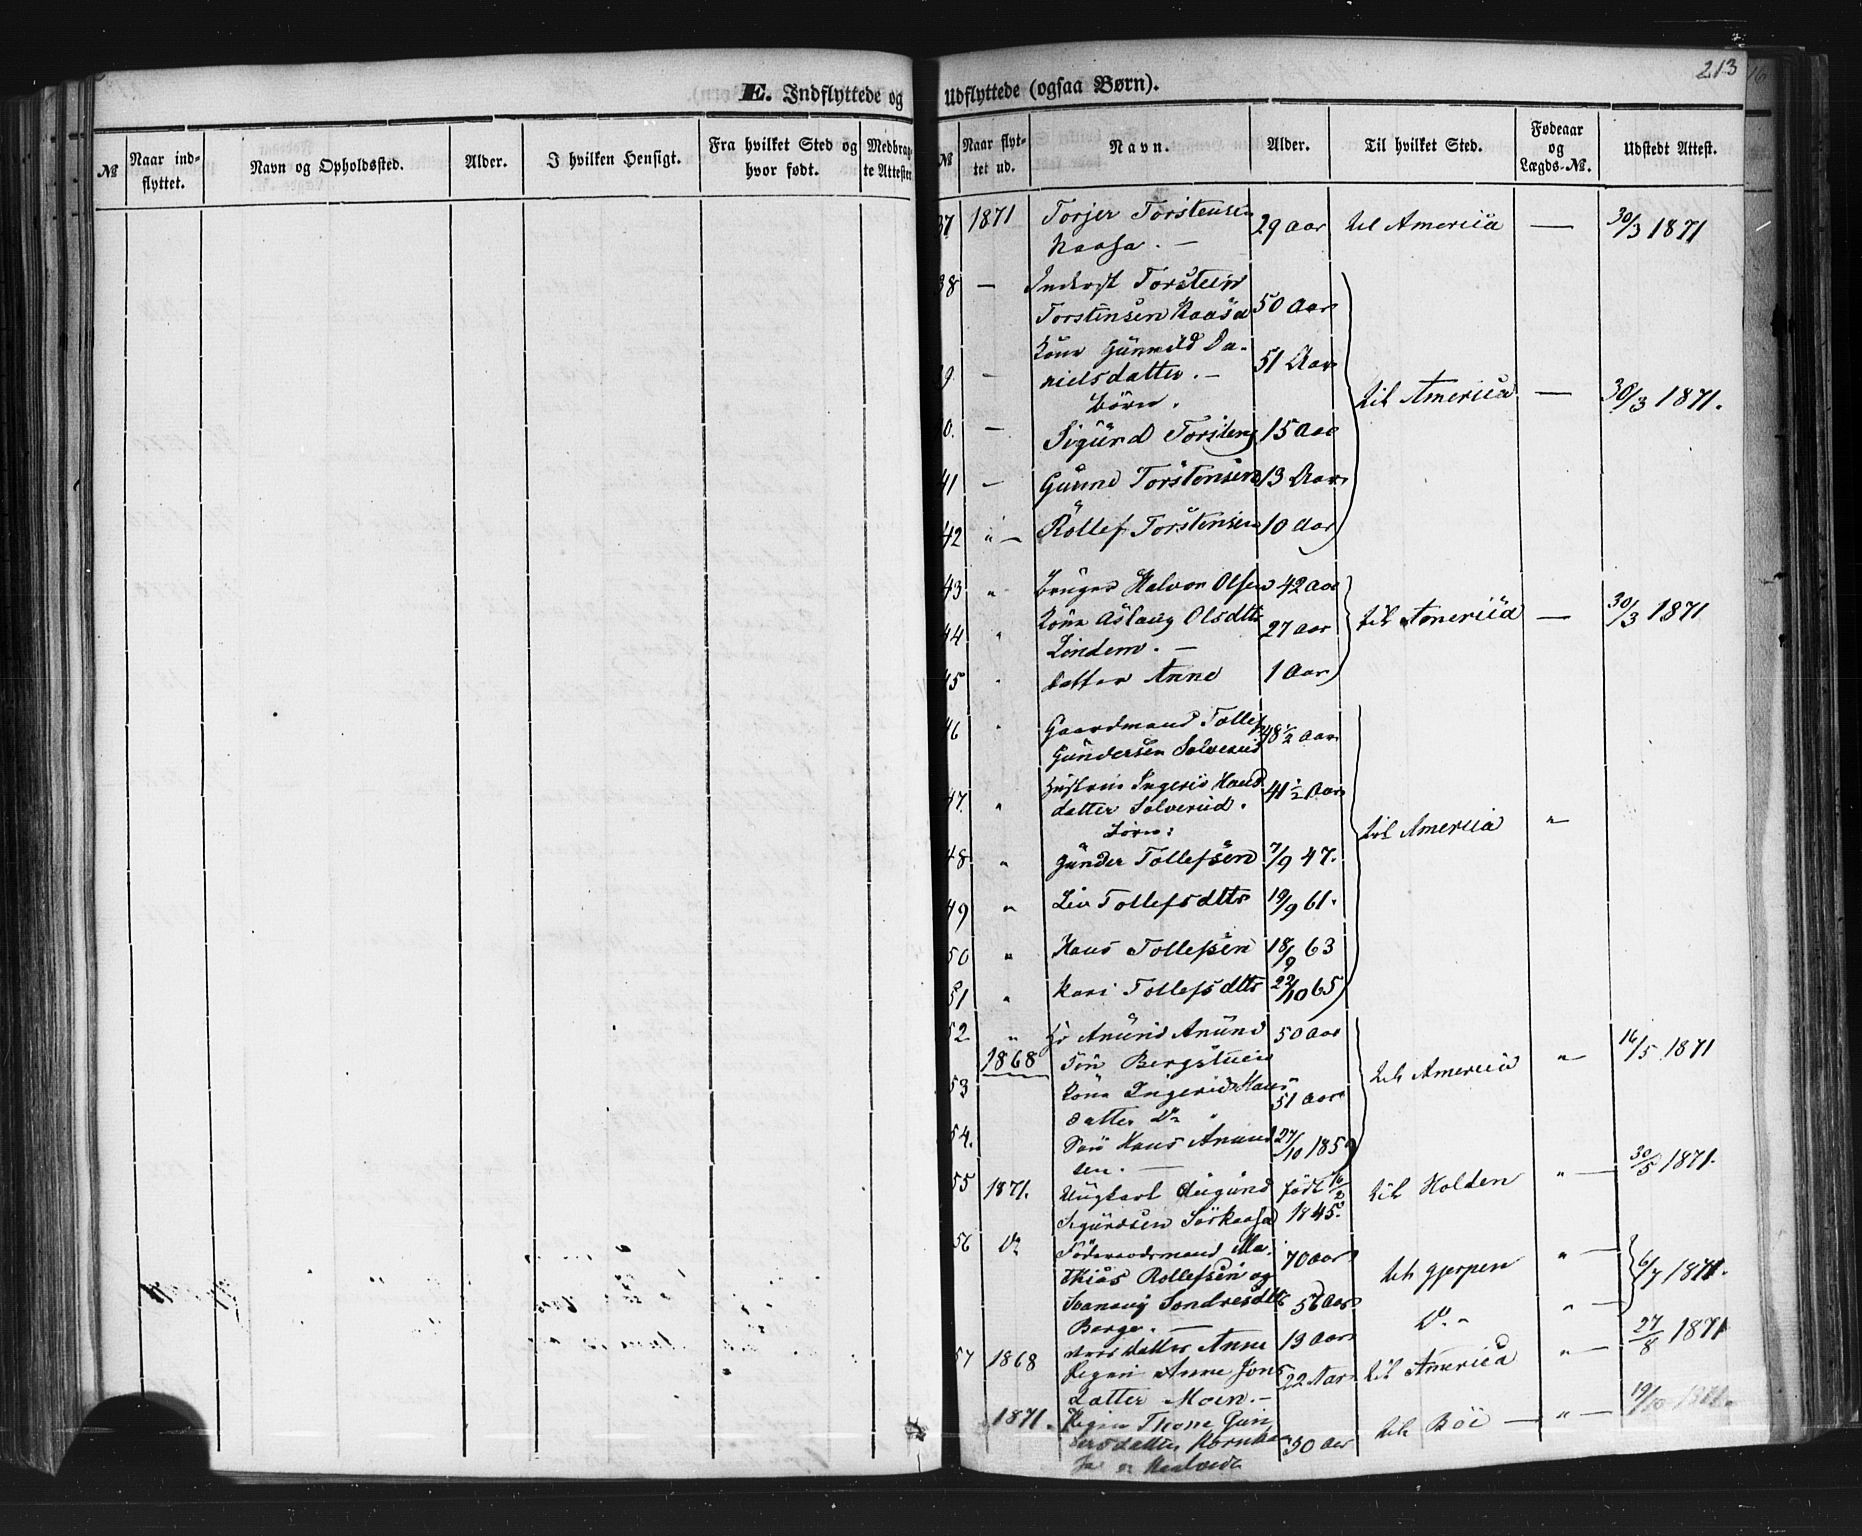 213
16
E. Indflyttede og
Udflyttede (ogsaa Børn).
№ Naar indflyttet. Navn og Opholdssted. Alder. I hvilken Hensigt. Fra hvilket Sted og hvor født. Medbragte Attester
№ Naar flyttet ud. Navn. Alder. Til hvilket Sted. Fødeaar og Lægds-№. Udstedt Attest.
37 1871 Torjer Torstensen 29 Aar til America — 30/3 1871
Kaasa. —
38 — Inderst Torstein
Torstensen Kaasa 50 Aar
Kone Gunnild Da-
39 — nielsdatter. — 51 Aar
Börn. til America — 30/3 1871.
40. — Sigurd Torstens 15 Aar
41 — Gunne Torstensen 13 Aar
42 " — Rollef Torstensen 10 Aar
43 " Halvor Olsen 42 Aar
Kone Aslaug Olsdtr til America — 30/3 1871
44 " Lindem. — 27 Aar
45 " datter Anne 1 Aar
46 " Gaardmand Tollef 48 1/2 Aar
Gundersen Solverud
47. " Hustru Ingerid Hans 41 1/2 Aar
datter Solverud.
Börn: til America "
48 " Gunder Tollefsen 7/9 47.
49 " Liv Tollefsdtr 19/9 61.
50 " Hans Tollefsen 18/9 63
51 " Kari Tollefsdtr 22/10 65
52 " Anund Anund 50 Aar
1868 sön Bergstuen til America " 16/5 1871
53 Kone Ingerid Hans
datter Do 51 Aar
54. Sön Hans Anund 27/10 185
sen. —
55 1871. Ungkarl Sigurd födt 16/2 til Holden " — 30/5 1871.
Sigurdsen Sörkaasa 1845.
56 Do Föderaadsmand Ma- 70 Aar " —
thias Rollefsen og til Gjerpen 6/7 1871.
Svanaug Sondresdtr 56 Aar " —
Berge. — Do "
datter Anne 13 Aar 27/8 1871
57 1868 Pigen Anne Jons 22 Aar til America " —
datter Moen. —
1871. Pigen Thone Gun 30 Aar til Böe — " — 19/10 1871.
dersdatter